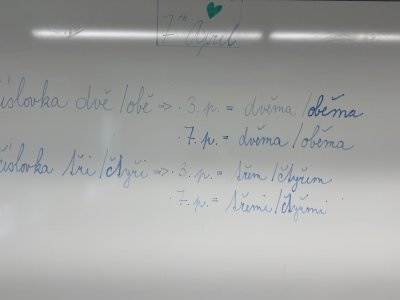 7th April
číslovka dvě/obě => • 3. p. = dvěma/oběma
• 7. p. = dvěma/oběma
číslovka tři/čtyři => • 3. p. = třem/čtyřem
• 7. p. = třemi/čtyřmi